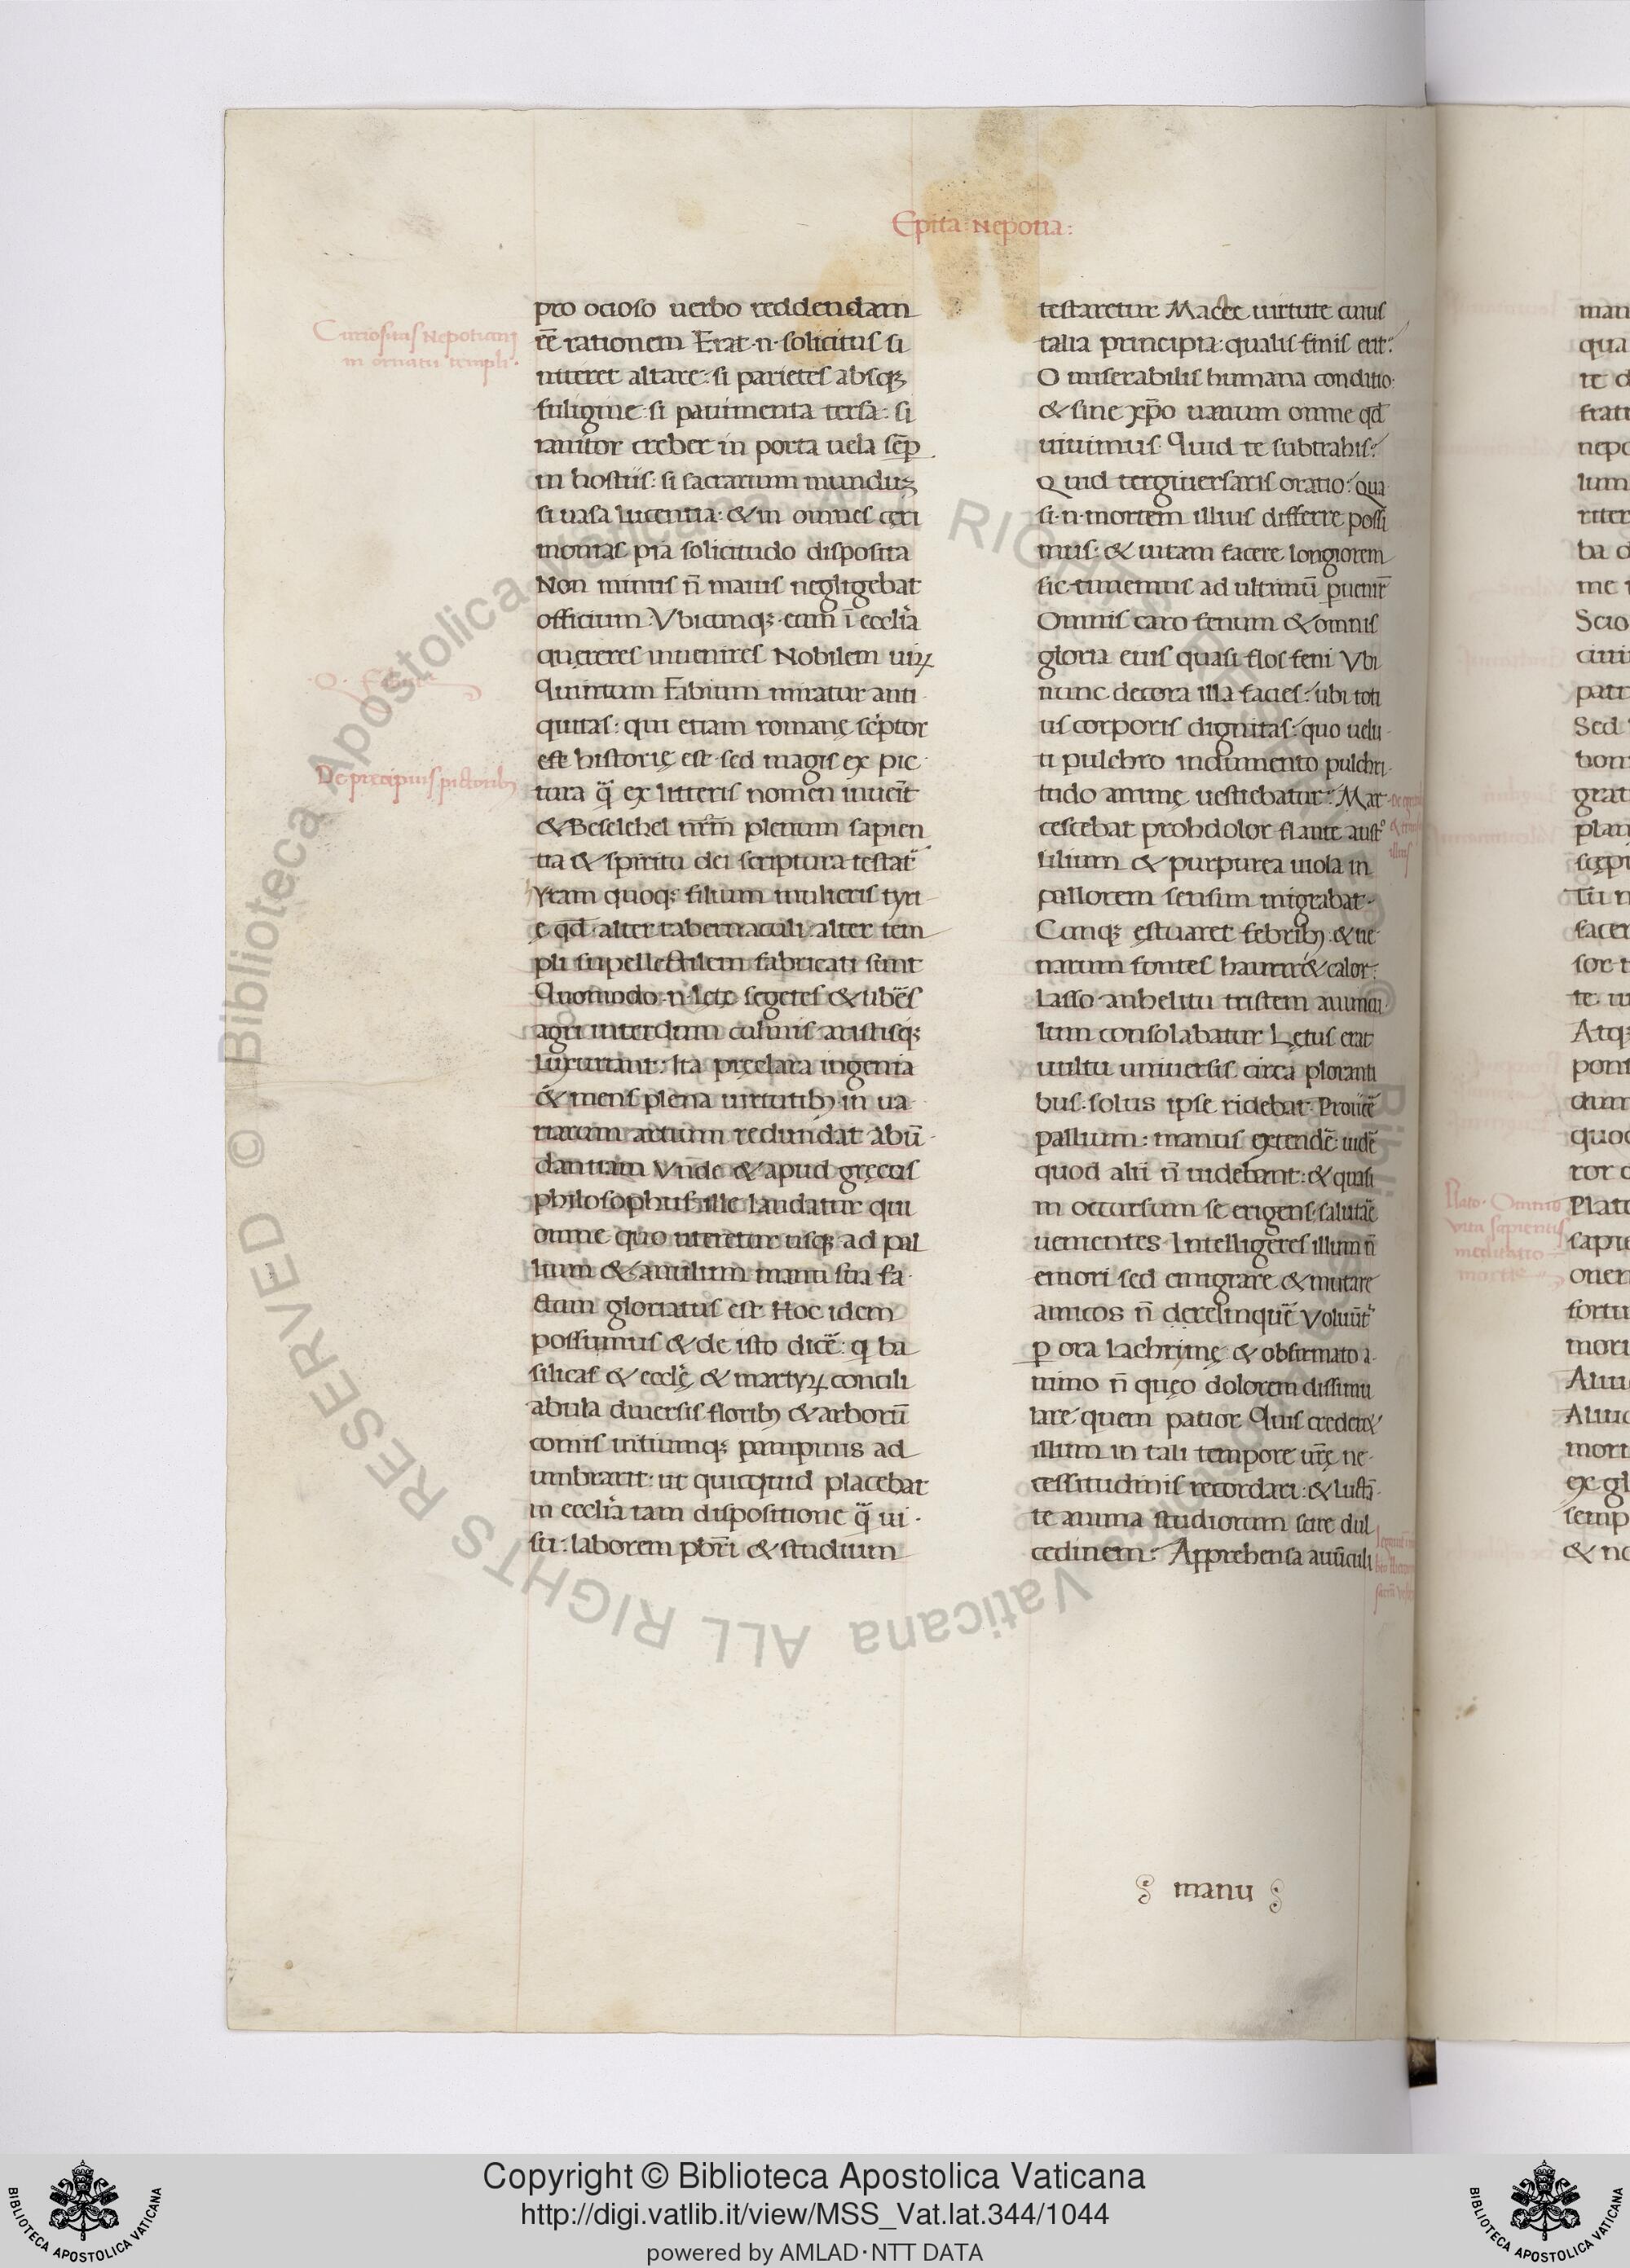 Epita: Nepotia:
Curiositas Nepotiani
in ornatu templi.
De precipuis pictorib9
pro ocioso uerbo reddendam
eē rationem Erat ·n· solicitus si
niteret altare: si parietes absqꝫ
fuligine: si pauimenta tersa: si
ianitor creber in porta uela sēp
in hostiis: si sacrarium munduꝫ
si uasa lucentia: & in omnes ceri
monias pia solicitudo disposita
Non minus n̄ maius negligebat
officium: Vbicumqꝫ eum ī ecclīa
quęreres inuenires Nobilem uiꝝ
Quintum Fabium miratur anti
quitas: qui etiam romanę scp̄tor
est historię est sed magis ex pic
tura q̄ ex litteris nomen inuenit
& Beselehel nrm̄ plenum sapien
tia & spiritu dei scriptura testat᷑
Yram quoqꝫ filium mulieris tyri
ę qđ alter tabernaculi alter tem
pli supellectilem fabricati sunt
Quomodo ·n· lętę segetes & ubēs
agri interdum culmis aristisqꝫ
luxuriant: Ita pręclara ingenia
& mens plena uirtutib9 in ua
riarum artium redundat abū
dantiam Vnde & apud gręcos
philosophus ille laudatur qui
omne quo uteretur usqꝫ ad pal
lium & anulum manu sua fa
ctum gloriatus est Hoc idem
possumus & de isto dicē: q ba
silicas & ecclę & martyꝝ concili
abula diuersis florib9 & arborū
comis uitiumqꝫ pampinis ad
umbrarit: ut quicquid placebat
in ecclīa tam dispositione q̄ ui
su: laborem pbr̄i & studium
testaretur Macte uirtute cuius
talia principia: qualis finis erit?
O miserabilis humana conditio:
& sine xp̄o uanum omne qđ
uiuimus Quid te subtrahis?
Quid tergiuersaris oratio? qua
si ·n· mortem illius differre possi
mus: & uitam facere longiorem
sic timemus ad ultimū puenir̄
Omnis caro fenum & omnis
gloria eius quasi flos feni Vbi
nunc decora illa facies? ubi toti
us corporis dignitas? quo uelu
ti pulchro indumento pulchri
tudo animę uestiebatur? Mar
cescebat prohdolor flante aust°
lilium & purpurea uiola in
pallorem sensim migrabat
Cumqꝫ ęstuaret febrib9 & ue
narum fontes hauriret calor:
Lasso anhelitu tristem auuncu
lum consolabatur Lętus erat
uultu uniuersis circa ploranti
bus: solus ipse ridebat Proiicē
pallium: manus extendē: uidē
quod alii n̄ uidebant: & quasi
in occursum se erigens salutāe
uenientes Intelligeres illum n̄
emori sed emigrare & mutare
amicos n̄ derelinquē Voluūt᷑
p ora lachrymę & obfirmato a
nimo n̄ queo dolorem dissimu
lare quem patior Quis crederet
illum in tali tempore nrę̄ ne
cessitudinis recordari: & luctā
te anima studiorum scire dul
cedinem? Apprehensa auūculi
manu
Copyright © Biblioteca Apostolica Vaticana
http://digi.vatlib.it/view/MSS_Vat.lat.344/1044
powered by AMLAD·NTT DATA
BIBLIOTECA APOSTOLICA VATICANA
BIBLIOTECA APOSTOLICA VATICANA